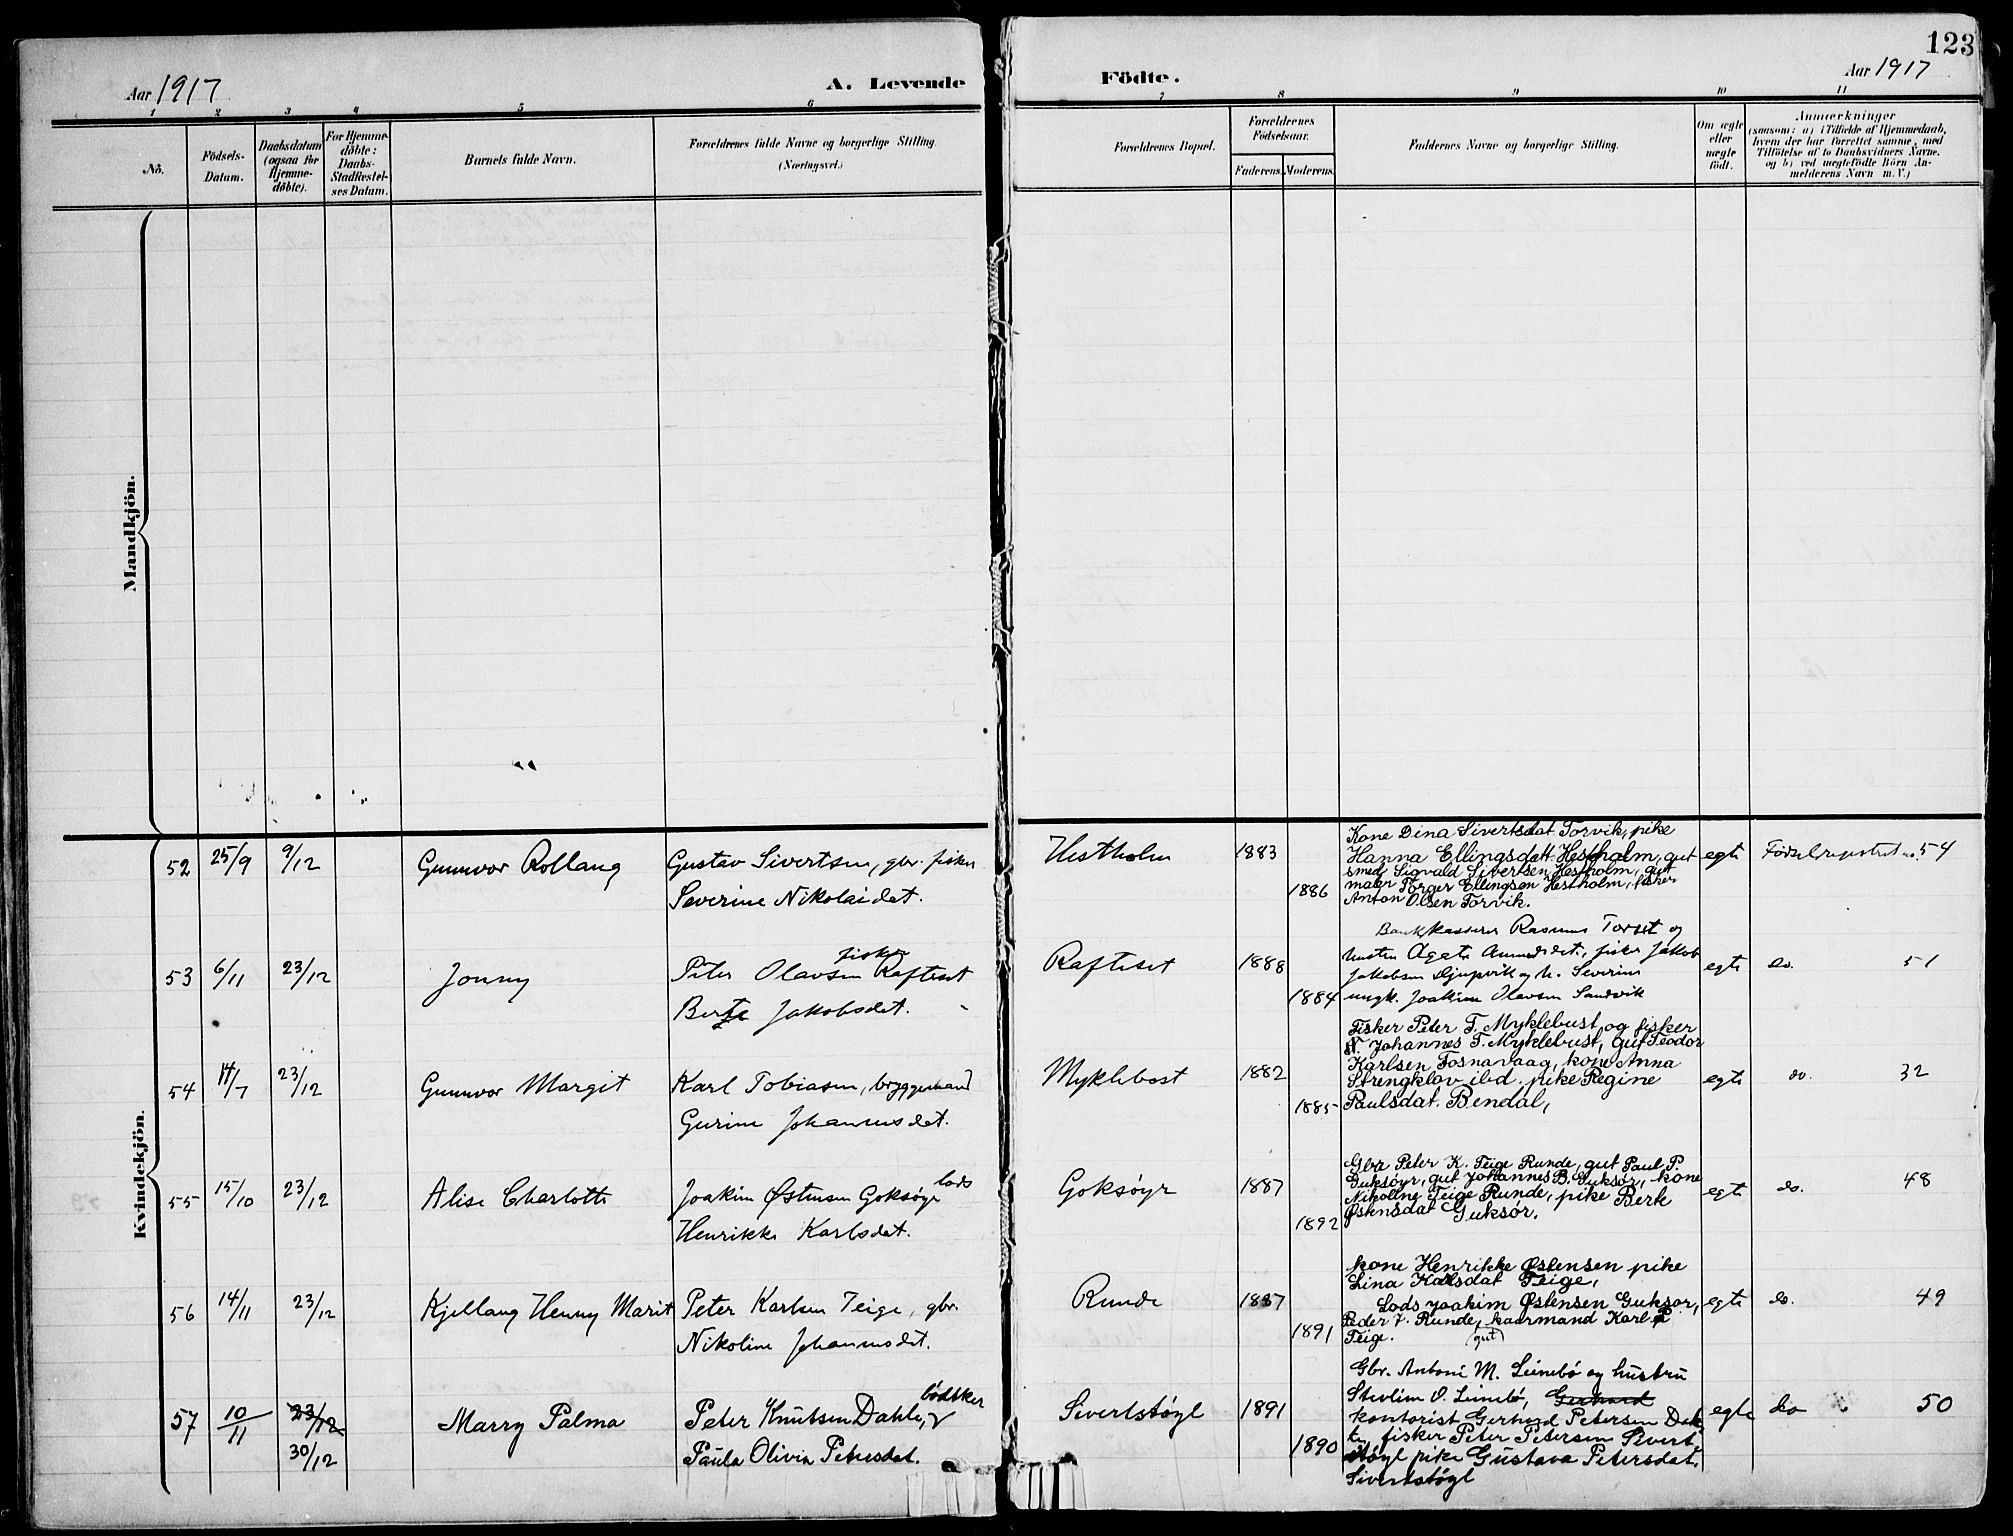 123
Aar 1917
A. Levende
Födte.
Aar 1917
1 2 3 4 5 6 7 8 9 10 11
No.
Födsels-
Datum.
Daabsdatum
(ogsaa for
Hjemme-
döbte).
For Hjemme-
döbte:
Daabs-
Stadfæstel-
ses Datum.
Barnets fulde Navn.
Forældrenes fulde Navne og borgerlige Stilling.
(Næringsvei.)
Forældrenes Bopæl.
Forældrenes
Födselsaar.
Faderens.
Moderens.
Faddernes Navne og borgerlige Stilling.
Om ægte
eller
uægte
födt.
Anmærkninger
(saasom: a) i Tilfælde af Hjemmedaab,
hvem der har forrettet samme, med
Tilföielse af to Daabsvidners Navne,
og b) ved uægtefödte Börn An-
melderens Navn m. V.)
Mandkjön.
Kvindekjön.
52 25/9 9/12
Gunnvor Rollaug
Gustav Sivertsen, gbr. fisker
Severine Nikolaidat.
Hestholm
1883
1886
Kone Dina Sivertsdat Torvik, pike
Hanna Ellingsdatt Hestholm, gut
smed Sigvald Sivertsen Hestholm, gut
maler Torger Ellingsen Hestholm, fisker
Anton Olsen Torvik.
egte
54
53 6/11 23/12
Jonny
fisker
Peter Olavsen Rafteset
Berte Jakobsdat.
Rafteset
1888
1884
Bankkasserer Rasmus Torset og
Jakobsen Djupvik og h. Severine
ungk. Joakim Olavsen Sandvik
egte
do.
51
54 14/7 23/12
Gunnvor Margit
Karl Tobiasen, bryggemand
Gurine Johannesdat.
Myklebost
1882
1885
Fisker Peter T. Myklebust og fisker
Johannes T. Myklebust, gut Teodor
Karlsen Fosnavaag, kone Anna
Strengklav ibd. pike Regine
Paulsdat. Bendal,
egte
do.
32
55 15/10 23/12
Alise Charlotte
lods
Joakim Østensen Goksöyr
Henrikke Karlsdat.
Goksöyr
1887
1892
Gbr Peter K. Teige Runde, gut Paul P.
Guksøyr, gut Johannes B. Guksör, kone
Nikoline Teige Runde, pike Berte
Østensdat Guksør.
egte
do.
48
56 14/11 23/12
Kjellaug Henny Marit
Peter Karlsen Teige, gbr.
Nikoline Johannesdat.
Runde
1887
1891
kone Henrikke Østensen pike
Lina Karlsdat Teige,
Lods Joakim Østensen Guksør,
Peder J. Runde, kaarmand Karl P
Teige. (gut)
egte
do.
49
57 10/11 23/12
30/12
Marry Palma
bödtker
Peter Knutsen Dahle,
Paula Olivia Petersdat.
Sivertstøyl
1891
1890
Gbr. Antoni M. Leinebø og hustru
Gerhard
kontorist Gerhard Petersen Dah-
le, fisker Peter Petersen Sivert-
støyl pike Gustava Petersdat.
Sivertstøyl
egte
do
50